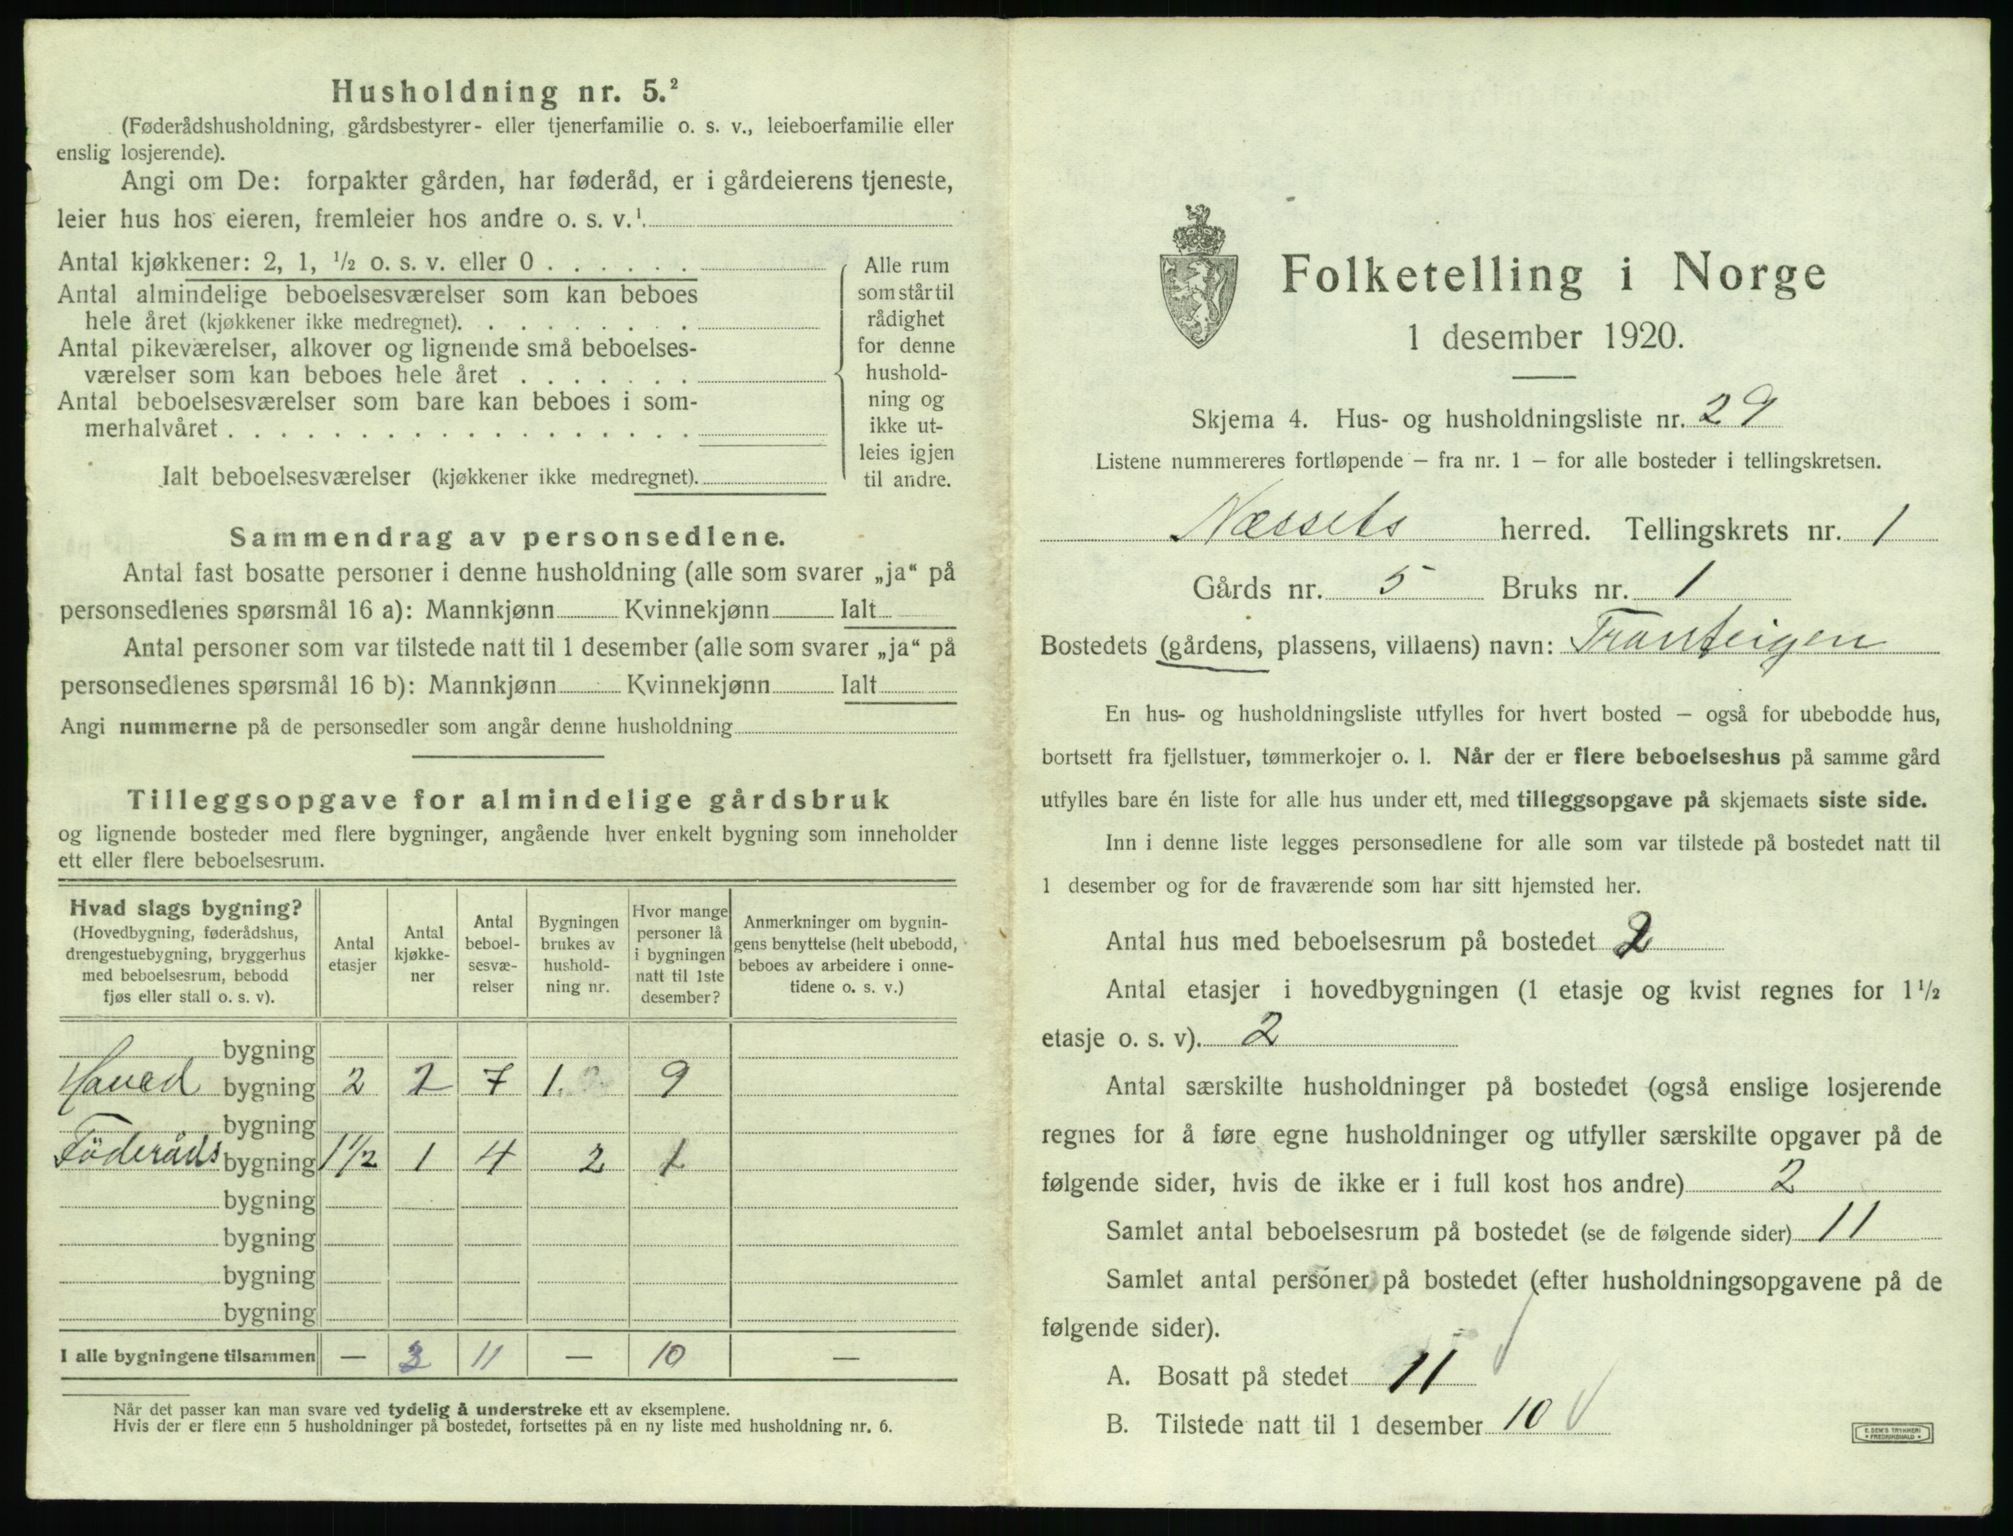 Husholdning nr. 5.²
(Føderådshusholdning, gårdsbestyrer- eller tjenerfamilie o. s. v., leieboerfamilie eller
enslig losjerende).
Angi om De: forpakter gården, har føderåd, er i gårdeierens tjeneste,
leier hus hos eieren, fremleier hos andre o. s. v.¹
Antal kjøkkener: 2, 1, ½ o. s. v. eller 0 . . . . . .
Antal almindelige beboelsesværelser som kan beboes
hele året (kjøkkener ikke medregnet). . . . . . . . .
Antal pikeværelser, alkover og lignende små beboelses-
værelser som kan beboes hele året . . . . . . .
Antal beboelsesværelser som bare kan beboes i som-
merhalvåret . . . . . . . . . . . . . . . . . .
Ialt beboelsesværelser (kjøkkener ikke medregnet).
Alle rum
som står til
rådighet
for denne
hushold-
ning og
ikke ut-
leies igjen
til andre.
Sammendrag av personsedlene.
Antal fast bosatte personer i denne husholdning (alle som svarer „ja“ på
personsedlenes spørsmål 16 a): Mannkjønn Kvinnekjønn Ialt
Antal personer som var tilstede natt til 1 desember (alle som svarer „ja“ på
personsedlenes spørsmål 16 b): Mannkjønn Kvinnekjønn Ialt
Angi nummerne på de personsedler som angår denne husholdning
Tilleggsopgave for almindelige gårdsbruk
og lignende bosteder med flere bygninger, angående hver enkelt bygning som inneholder
ett eller flere beboelsesrum.
Hvad slags bygning?
(Hovedbygning, føderådshus,
drengestuebygning, bryggerhus
med beboelsesrum, bebodd
fjøs eller stall o. s. v).
Antal
etasjer
Antal
kjøkke-
ner
Antal
beboel-
sesvæ-
relser
Bygningen
brukes av
hushold-
ning nr.
Hvor mange
personer lå
i bygningen
natt til 1ste
desember?
Anmerkninger om bygnin-
gens benyttelse (helt ubebodd,
beboes av arbeidere i onne-
tidene o. s. v.)
bygning
Hoved bygning 2 2 7 1. 9
bygning
Föderåds bygning 1½ 1 4 2 1
bygning
bygning
bygning
bygning
I alle bygningene tilsammen — 3 11 — 10 —
Når det passer kan man svare ved tydelig å understreke ett av eksemplene.
Hvis der er flere enn 5 husholdninger på bostedet, fortsettes på en ny liste med husholdning nr. 6.
Folketelling i Norge
1 desember 1920.
Skjema 4. Hus- og husholdningsliste nr. 29
Listene nummereres fortløpende – fra nr. 1 – for alle bosteder i tellingskretsen.
Næssets herred. Tellingskrets nr. 1
Gårds nr. 5 Bruks nr. 1
Bostedets (gårdens, plassens, villaens) navn: Tranteigen
En hus- og husholdningsliste utfylles for hvert bosted – også for ubebodde hus,
bortsett fra fjellstuer, tømmerkojer o. l. Når der er flere beboelseshus på samme gård
utfylles bare én liste for alle hus under ett, med tilleggsopgave på skjemaets siste side.
Inn i denne liste legges personsedlene for alle som var tilstede på bostedet natt til
1 desember og for de fraværende som har sitt hjemsted her.
Antal hus med beboelsesrum på bostedet 2
Antal etasjer i hovedbygningen (1 etasje og kvist regnes for 1½
etasje o. s. v). 2
Antal særskilte husholdninger på bostedet (også enslige losjerende
regnes for å føre egne husholdninger og utfyller særskilte opgaver på de
følgende sider, hvis de ikke er i full kost hos andre) 2
Samlet antal beboelsesrum på bostedet (se de følgende sider) 11
Samlet antal personer på bostedet (efter husholdningsopgavene på de
følgende sider).
A. Bosatt på stedet 11
B. Tilstede natt til 1 desember 10
E. SEM'S TRYKKERI
• FREDRIKSHALD •